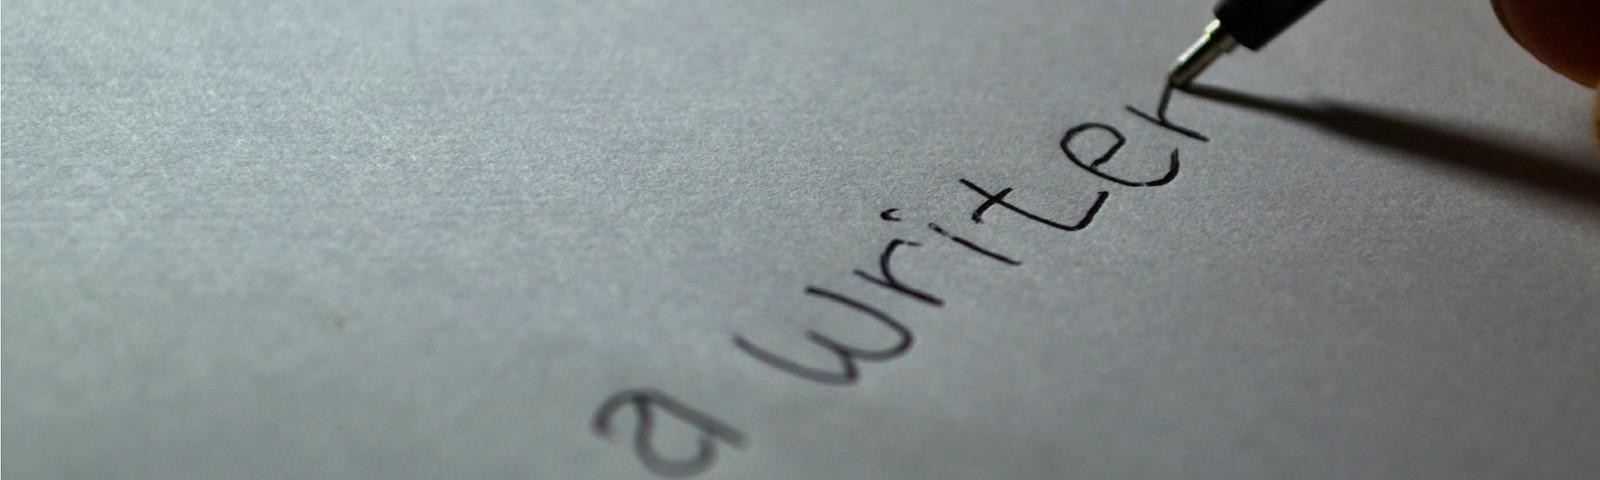 a writer